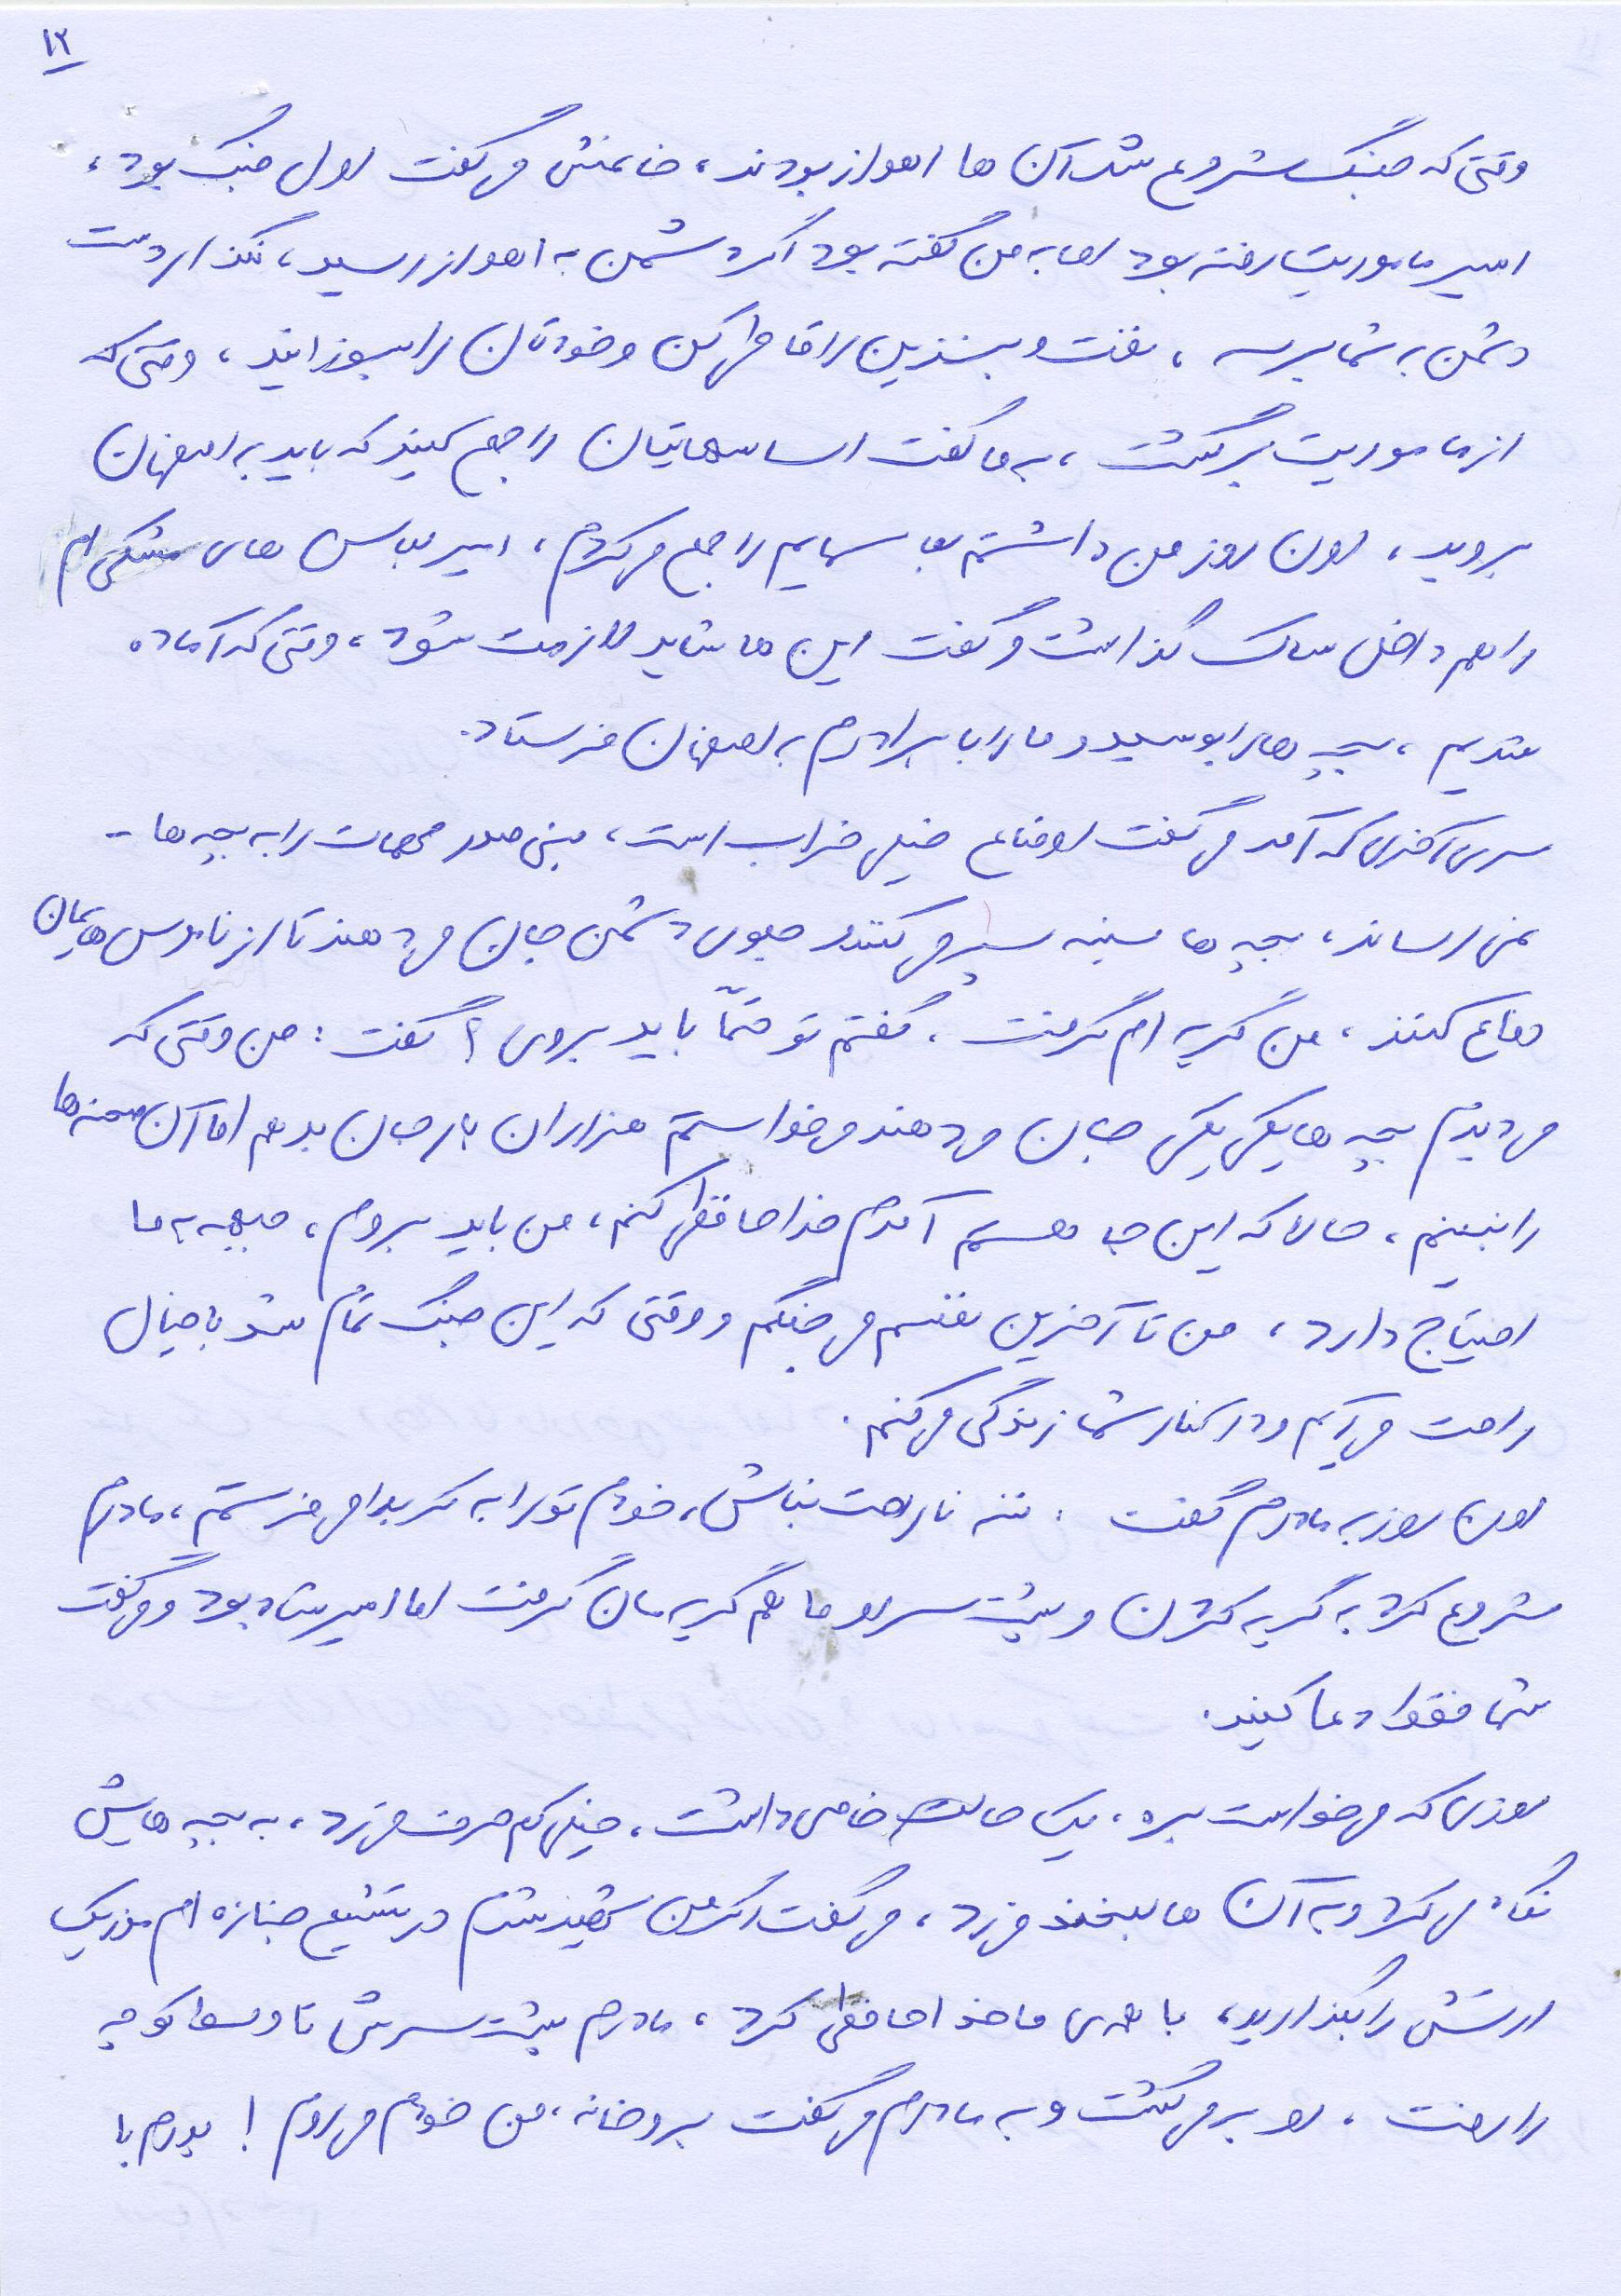 ۱۲
وقتی که جنگ شروع شد آن ها اهواز بودند، خانمش می گفت اول جنگ بود،
امیر ماموریت رفته بود اما به من گفته بود اگر دشمن به اهواز رسید، نگذار دست
دشمن به شما برسه، نفت و بنزین را قاطی کن و خودتان را بسوزانید، وقتی که
از ماموریت برگشت، به ما گفت اساسهایتان را جمع کنید که باید به اصفهان
بروید، اون روز من داشتم لباسهایم را جمع می کردم، امیر لباس های مشکی ام
را هم داخل ساک گذاشت و گفت این ها شاید لازمت شود، وقتی که آماده
شدیم، بچه ها را بوسید و ما را با برادرم به اصفهان فرستاد.
سری آخری که آمد می گفت اوضاع خیلی خراب است، بنی صدر مهمات را به بچه ها -
نمی رساند، بچه ها سینه سپر می کنند و جلوی دشمن جان می دهند تا از ناموس هایمان
دفاع کنند، من گریه ام گرفت. گفتم تو حتماً باید بروی؟ گفت: من وقتی که
می دیدم بچه ها یکی یکی جان می دهند می خواستم هزاران بار جان بدهم اما آن صحنه ها
را نبینم، حالا که این جا هستم آمدم خداحافظی کنم، من باید بروم، جبهه به ما
احتیاج دارد، من تا آخرین نفسم می جنگم و وقتی که این جنگ تمام شد با خیال
راحت می آیم و در کنار شما زندگی می کنم.
اون روز به مادرم گفت: ننه ناراحت نباش، خودم تو را به کربلا می فرستم، مادرم
شروع کرد به گریه کردن و پشت سر او ما هم گریه مان گرفت اما امیر شاد بود و می گفت
شما فقط دعا کنید.
روزی که می خواست بره، یک حالت خاصی داشت، خیلی کم حرف می زد، به بچه هایش
نگاه می کرد و به آن ها لبخند می زد، می گفت اگر من شهید شدم در تشییع جنازه ام موزیک
ارتش را بگذارید، با همه ی ما خداحافظی کرد، مادرم پشت سرش تا وسط کوچه
را رفت، او بر می گشت و به مادرم می گفت برو خانه، من خودم می روم! پدرم با